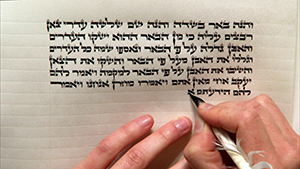 והנה באר בשדה והנה שם שלשה עדרי צאן
רבצים עליה כי מן הבאר ההוא ישקו העדרים
והאבן גדלה על פי הבאר ונאספו שמה כל העדרים
וגללו את האבן מעל פי הבאר והשקו את הצאן
והשיבו את האבן על פי הבאר למקמה ויאמר להם
יעקב אחי מאין אתם ויאמרו מחרן אנחנו ויאמר
להם הידעתם א